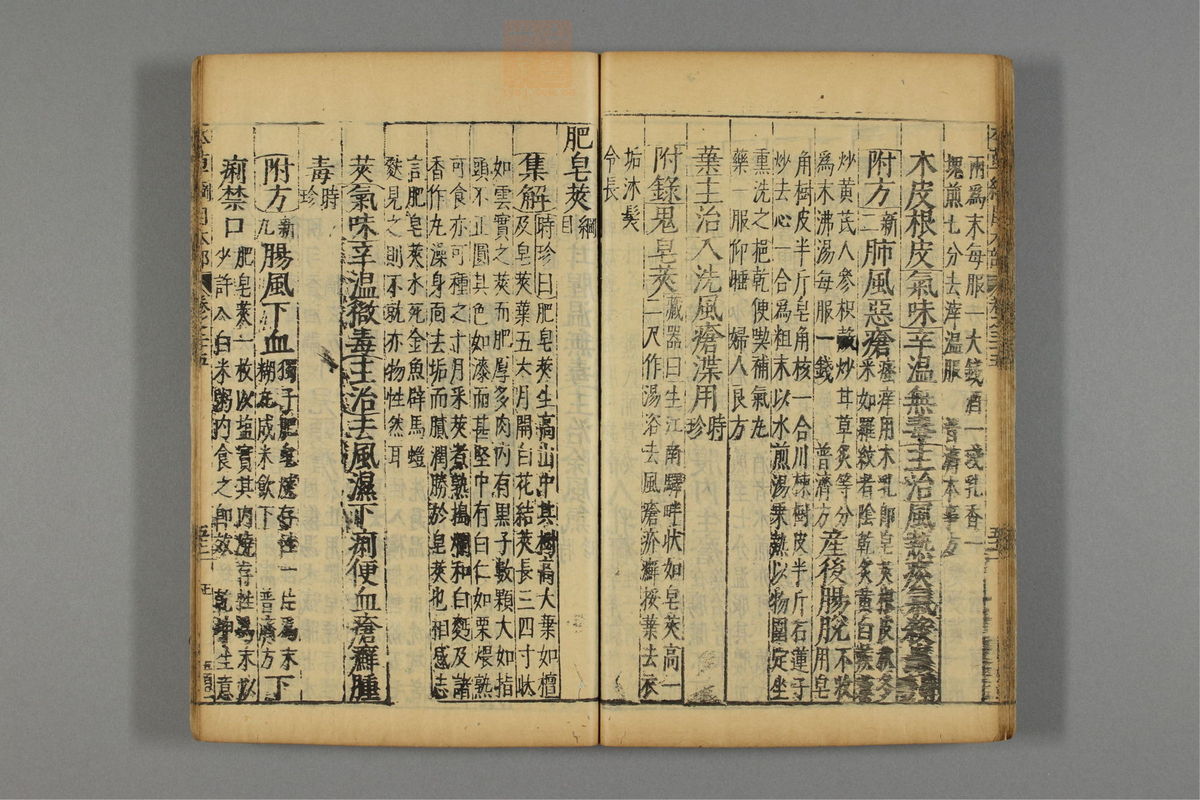 兩為末每服一大錢酒一琖乳香一
塊煎七分去滓溫服 普濟本事方
木皮根皮氣味辛溫無毒主治風熱痰氣殺蟲
附方新二肺風惡瘡瘙痒用木乳即皂莢根皮
米如羅紋者陰乾炙黃白蒺藜
炒黃芪人參枳殼炒甘草炙等分
為末沸湯每服一錢 普濟方 產後腸脫不收用皂
角樹皮半斤皂角核一合川楝樹皮半斤石蓮子
炒去心一合為粗末以水煎湯乗熱以物圍定坐
熏洗之挹乾便喫補氣丸
藥一服仰睡 婦人良方
葉主治入洗風瘡渫用時珍
附錄鬼皂莢藏器曰生江南驛畔狀如皂莢高一
二尺作湯浴去風瘡疥癬挼葉去衣
垢沐髮
令長
肥皂莢綱目
集解時珍曰肥皂莢生高山中其樹高大葉如檀
及皂莢葉五六月開白花結莢長三四寸狀
如雲實之莢而肥厚多肉內有黑子數顆大如指
頭不正圓其色如漆而甚堅中有白仁如栗煨熟
可食亦可種之十月采莢煮熟搗爛和白麪及諸
香作丸澡身面去垢而膩潤勝於皂莢也相感志
言肥皂莢水死金魚辟馬螘
麩見之則不就亦物性然耳
莢氣味辛溫微毒主治去風濕下痢便血瘡癬腫
毒時珍
附方新九腸風下血獨子肥皂燒存性一片為末
糊丸成米飲下 普濟方 下
痢禁口肥皂莢一枚以鹽實其內燒存性為末以
少許入白米粥內食之即效 乾坤生意
本草綱目木部 卷之三十五